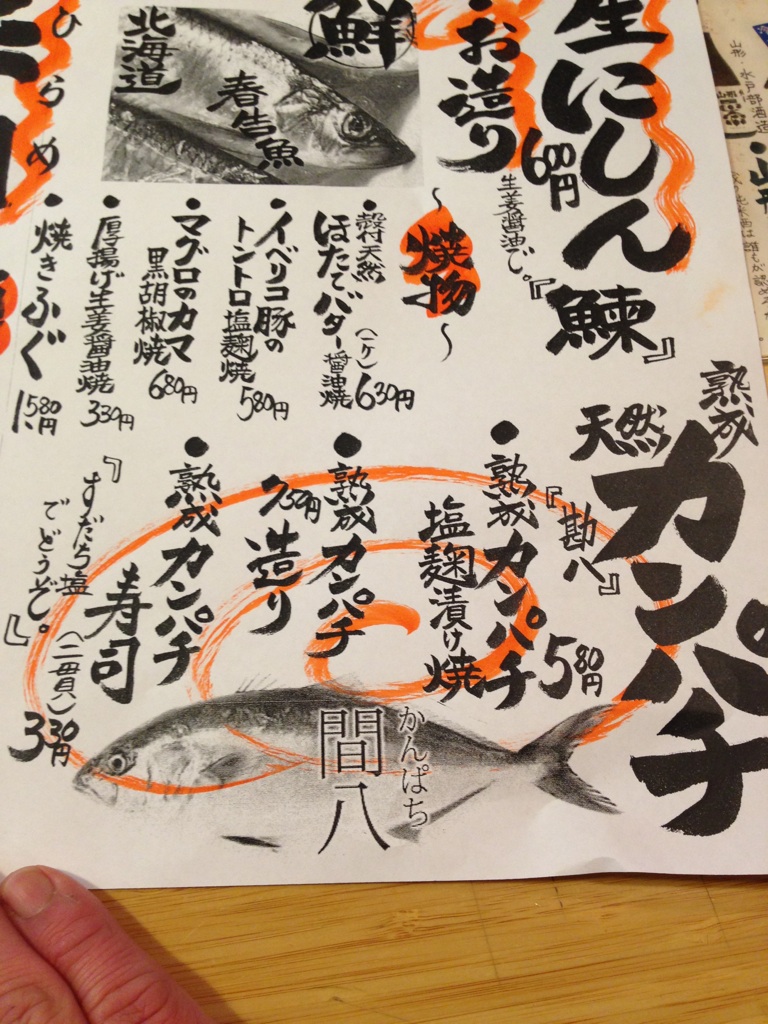 生にしん
『鰊』
・お造り
600円
生姜醤油で。
鮮
北海道
春告魚
ひらめ
～焼物～
・殻付天然
ほたてバター醤油焼
(一ケ)
630円
・イベリコ豚の
トントロ塩麹焼
580円
・マグロのカマ
黒胡椒焼
680円
・厚揚げ生姜醤油焼
330円
・焼きふぐ
1,580円
熟成
天然
カンパチ
『勘八』
・熟成カンパチ
塩麹漬け焼
580円
・熟成カンパチ
造り
750円
・熟成カンパチ
寿司
(二貫)
330円
『すだち塩
でどうぞ。』
かんぱち
間八
山形・水戸部酒造